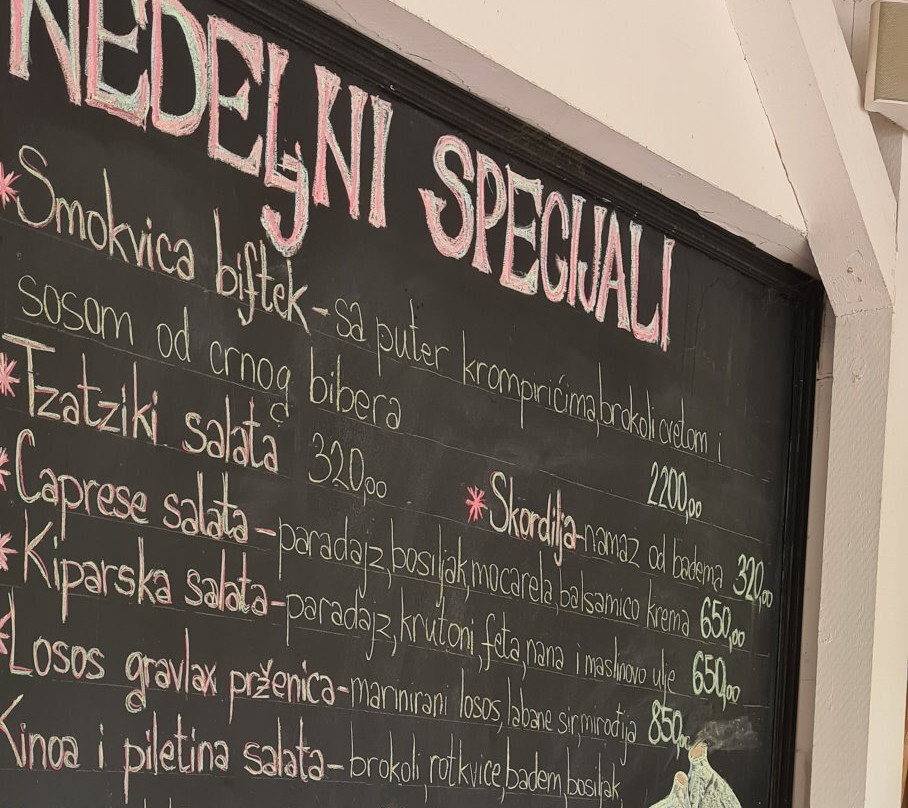 NEDELJNI SPECIJALI
* Smokvica biftek - sa puter krompirićima, brokoli cvetom i
sosom od crnog bibera 2200,00
* Tzatziki salata 320,00 * Skordilja - namaz od badema 320,00
* Caprese salata - paradajz, bosiljak, mocarela, balsamico krema 650,00
* Kiparska salata - paradajz, krutoni, feta, nana i maslinovo ulje 650,00
* Losos gravlax prženica - marinirani losos, labane sir, mirođija 850,00
Kinoa i piletina salata - brokoli, rotkvice, badem, bosiljak,